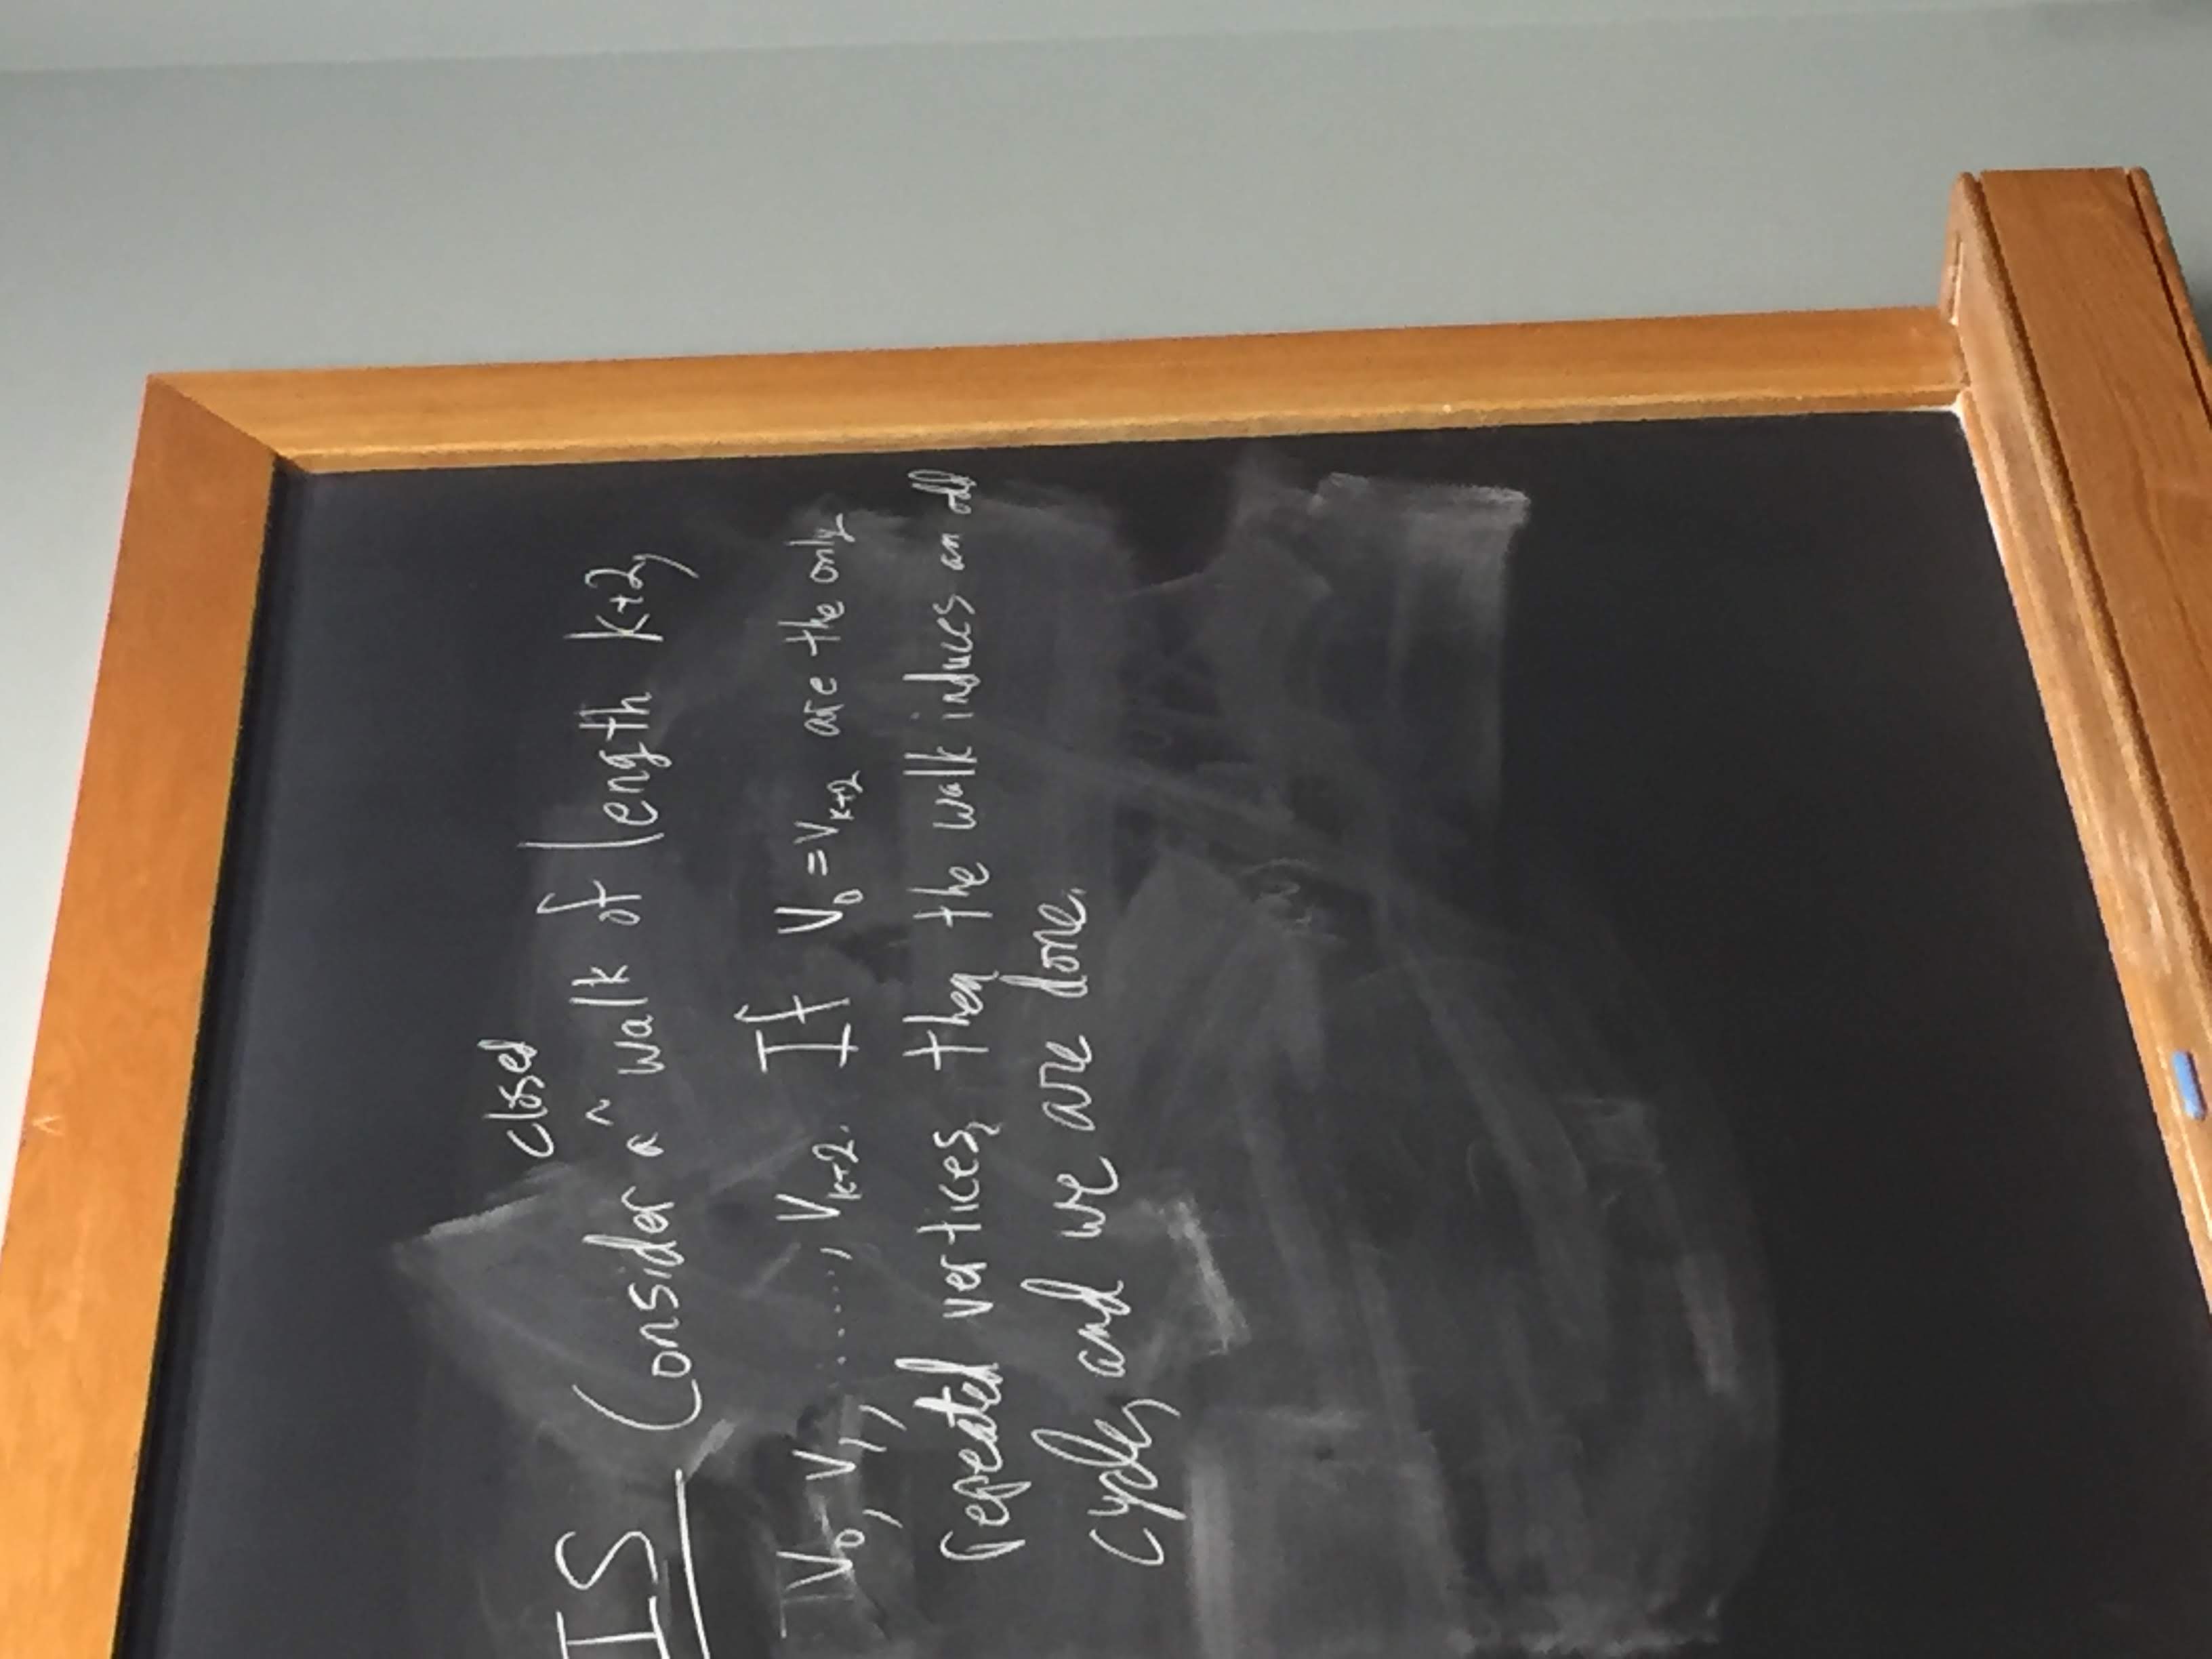 closed
IS Consider a ^ walk of length k+2,
V₀, V₁, ......, Vₖ₊₂. If V₀ = Vₖ₊₂ are the only
repeated vertices, then the walk induces an odd
cycle, and we are done.